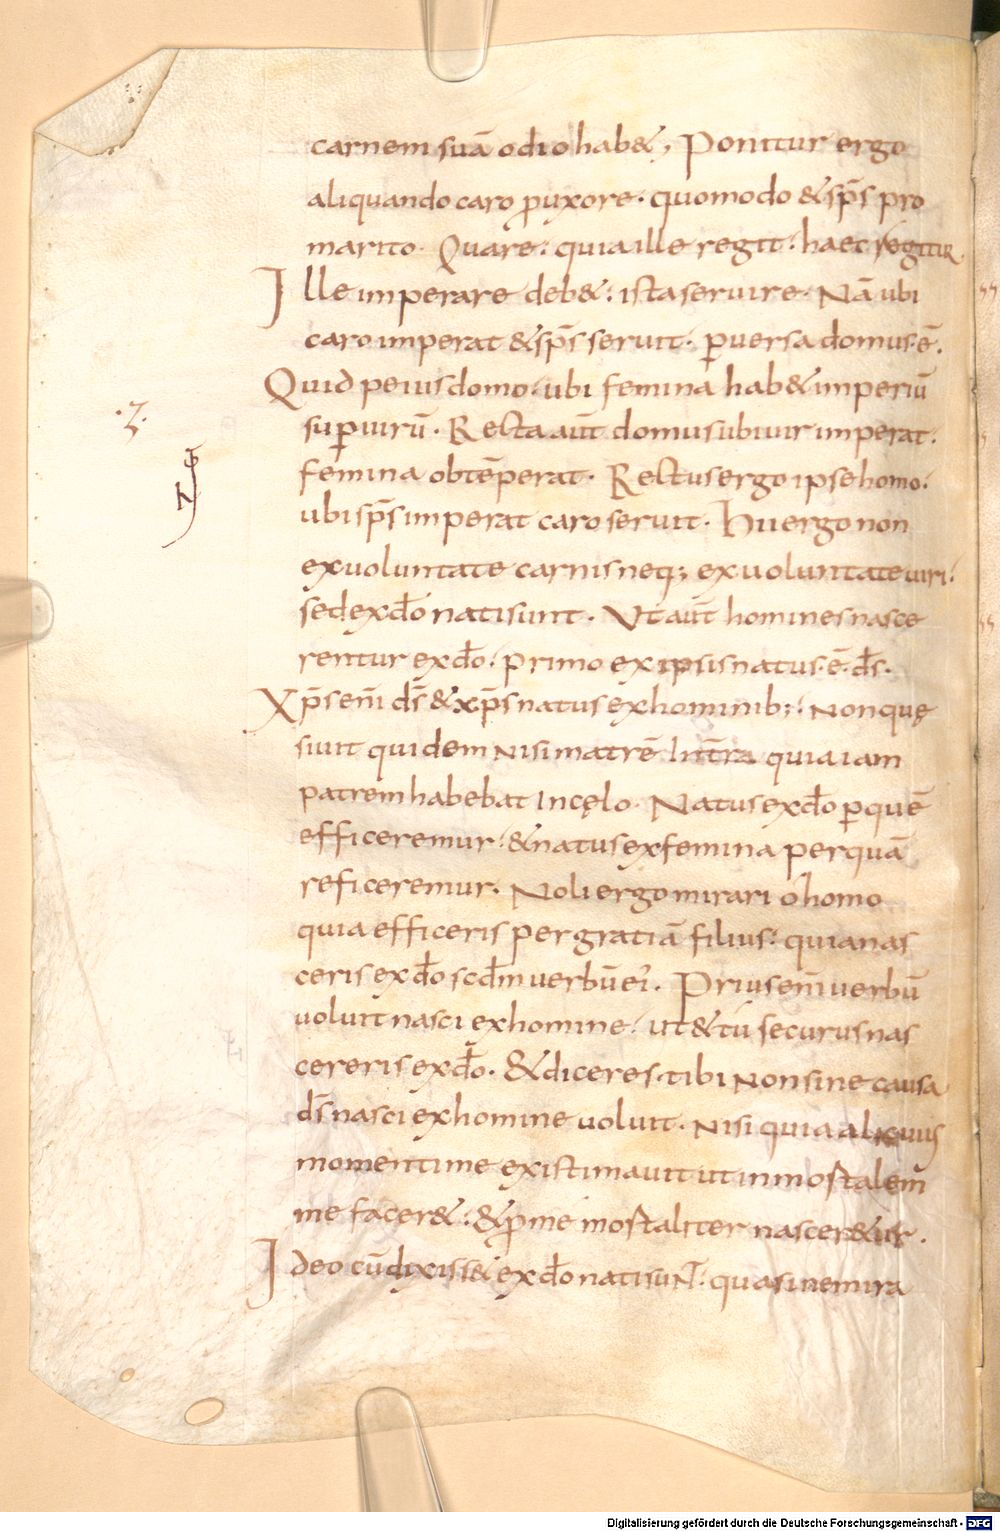 carnem suā odio hab&; Ponitur ergo
aliquando caro ꝓuxore· quomodo &sp̄s pro
marito· Quare: quia ille regit: haec regitur
Ille imperare deb&: ista seruire· Nā ubi
caro imperat &sp̄s seruit· ꝑuersa domus·ē·
Quid peius domo· ubi femina hab& imperiū
suꝑ uirū· Recta aut̄ domus ubi uir imperat·
·z·
femina obtēperat· Rectus ergo ipse homo:
ubi sp̄s imperat caro seruit· Hii ergo non
ex uoluntate carnis neq; ex uoluntate uiri:
sed ex dō nati sunt· Ut aut̄ homines nasce
rentur ex dō: primo ex ipsis natus·ē·ds̄·
Xp̄s eni̅ ds̄ & xp̄s natus ex hominib;: Non quę
siuit quidem nisi matrē in tr̄a quia iam
patrem habebat in cęlo· Natus ex dō ꝑ quē
efficeremur: & natus ex femina per quā
reficeremur· Noli ergo mirari o homo
quia efficeris per gratiā filius: quia nas
ceris ex dō scd̄m uerbū ei'· Prius eni̅ uerbū
uoluit nasci ex homine: ut & tu securus nas
cereris ex dō· & diceres tibi Non sine causa
ds̄ nasci ex homine uoluit· nisi quia alicuius
momenti me existimauit ut inmortalem̄
me facer&: & ꝓ me mortaliter nascer&ur·
Ideo cū dixiss& ex dō nati suN̄T: quasi ne mira
Digitalisierung gefördert durch die Deutsche Forschungsgemeinschaft - DFG